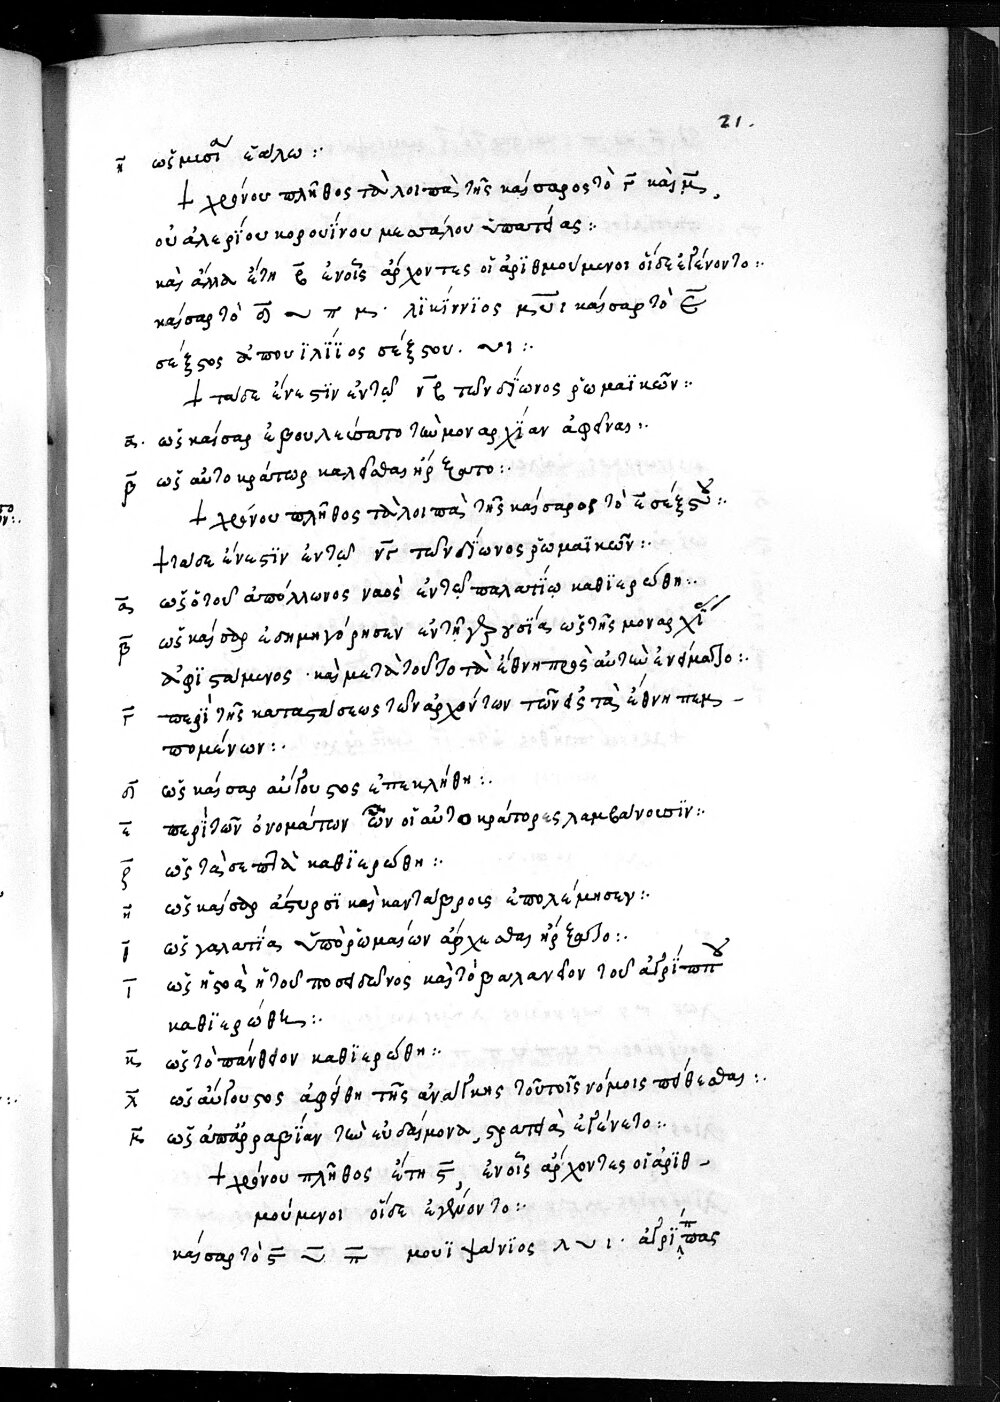 21.
η̅ ὡς μυσία ἑάλω :·
+ χρόνου πλῆθος τὰ λοιπὰ τῆς καίσαρος τὸ γ̅ καὶ μ̅,
οὐαλερίου κορουίνου μεσσάλου ὑπατείας :·
καὶ ἄλλα ἔτη β̅ ἐν οἷς ἄρχοντες οἱ ἀριθμούμενοι οἵδε ἐγένοντο :·
καῖσαρ τὸ δ̅ λικίννιος καῖσαρ τὸ ε̅
σέξτος ἀπουιλίϊος σέξτου. :·
+ τάδε ἔνεστιν ἐν τῷ νβ τῶν δίωνος ῥωμαϊκῶν :·
α̅. ὡς καῖσαρ ἐβουλεύσατο τὴν μοναρχίαν ἀφεῖναι :·
β̅ ὡς αὐτοκράτωρ καλεῖσθαι ἤρξατο :·
+ χρόνου πλῆθος τὰ λοιπὰ τῆς καίσαρος τὸ ε̅ σέξτου :·
+ τάδε ἔνεστιν ἐν τῷ νγ̅ τῶν δίωνος ῥωμαϊκῶν :·
α̅ ὡς ὁ τοῦ ἀπόλλωνος ναὸς ἐν τῷ παλατίῳ καθιερώθη :·
β̅ ὡς καῖσαρ ἐδημηγόρησεν ἐν τῇ γερουσίᾳ ὡς τῆς μοναρχίας
ἀφιστάμενος · καὶ μετὰ τοῦτο τὰ ἔθνη πρὸς αὐτὴν ἐνείματο :·
γ̅ περὶ τῆς καταστάσεως τῶν ἀρχόντων τῶν εἰς τὰ ἔθνη πεμ-
πομένων :·
δ̅ ὡς καῖσαρ αὔγουστος ἐπεκλήθη :·
ε̅ περὶ τῶν ὀνομάτων ὧν οἱ αὐτοκράτορες λαμβάνουσιν :·
ὡς τὰ σεπτὰ καθιερώθη :·
η̅ ὡς καῖσαρ ἄστυρσι καὶ καντάβροις ἐπολέμησεν :·
ὡς γαλατία ὑπὸ ῥωμαίων ἄρχεσθαι ἤρξατο :·
ι̅ ὡς ἡ στοὰ ἡ τοῦ ποσειδῶνος καὶ τὸ βαλανεῖον τοῦ ἀγρίππου
καθιερώθη :·
κ̅ ὡς τὸ πάνθειον καθιερώθη :·
λ̅ ὡς αὔγουστος ἀφείθη τῆς ἀνάγκης τοῦ τοῖς νόμοις πείθεσθαι :·
ὡς ἐπ' ἀρραβίαν τὴν εὐδαίμονα, στρατεία ἐγένετο :·
+ χρόνου πλῆθος ἔτη ϛ̅, ἐν οἷς ἄρχοντες οἱ ἀριθ-
μούμενοι οἵδε ἐγένοντο :·
καῖσαρ τὸ ϛ̅ μουιψάνιος ἀγρίππας